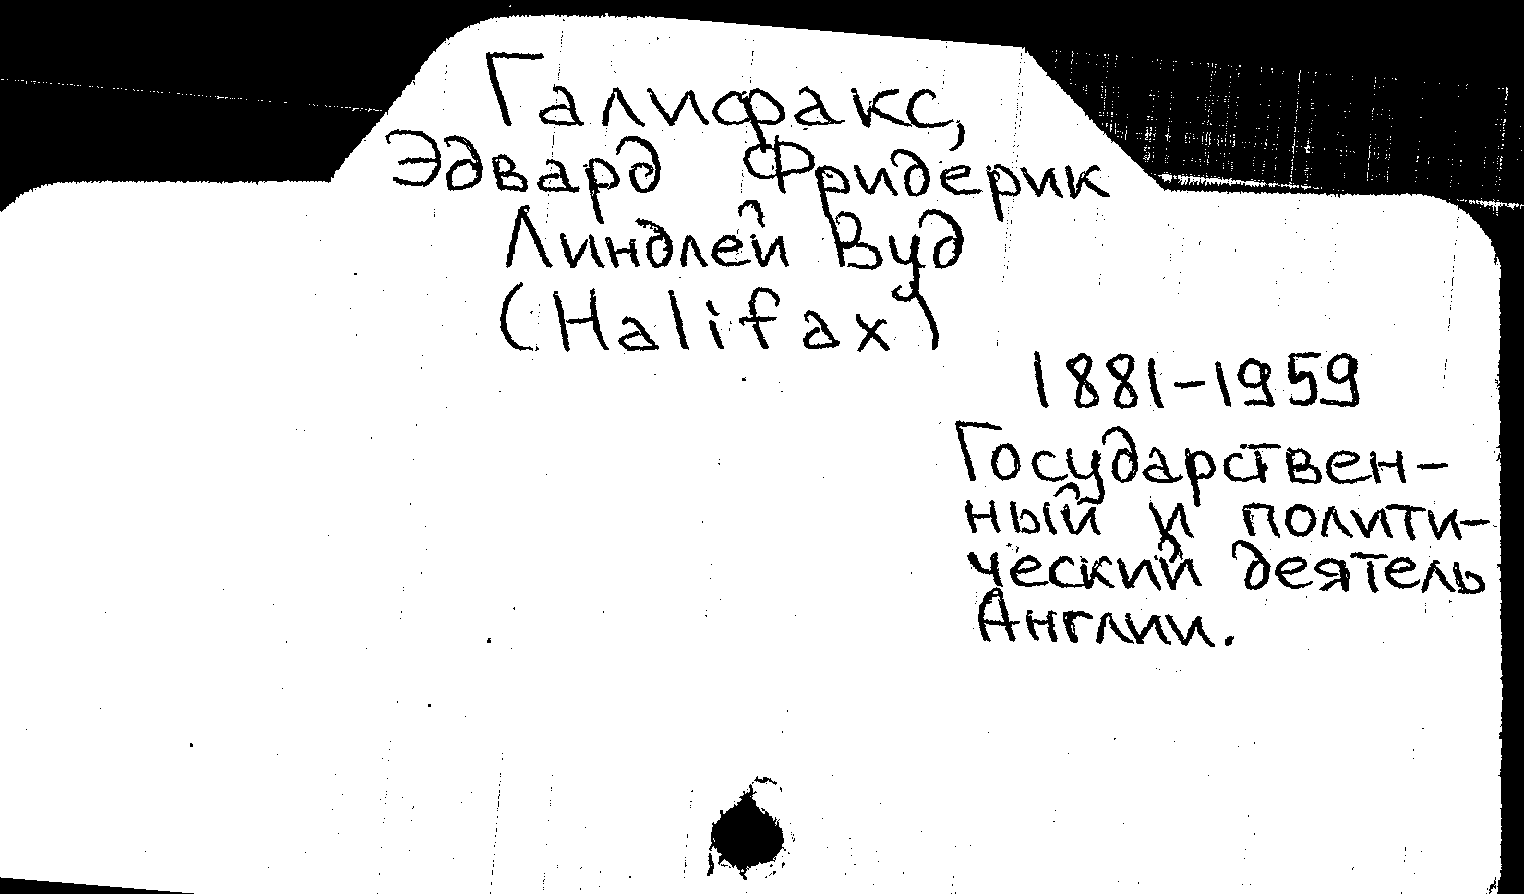 Галифакс,
Эдвард Фридерик
Линдлей Вуд
(Halifax)
1881-1959
Государствен-
ный и полити-
ческий деятель
Англии.